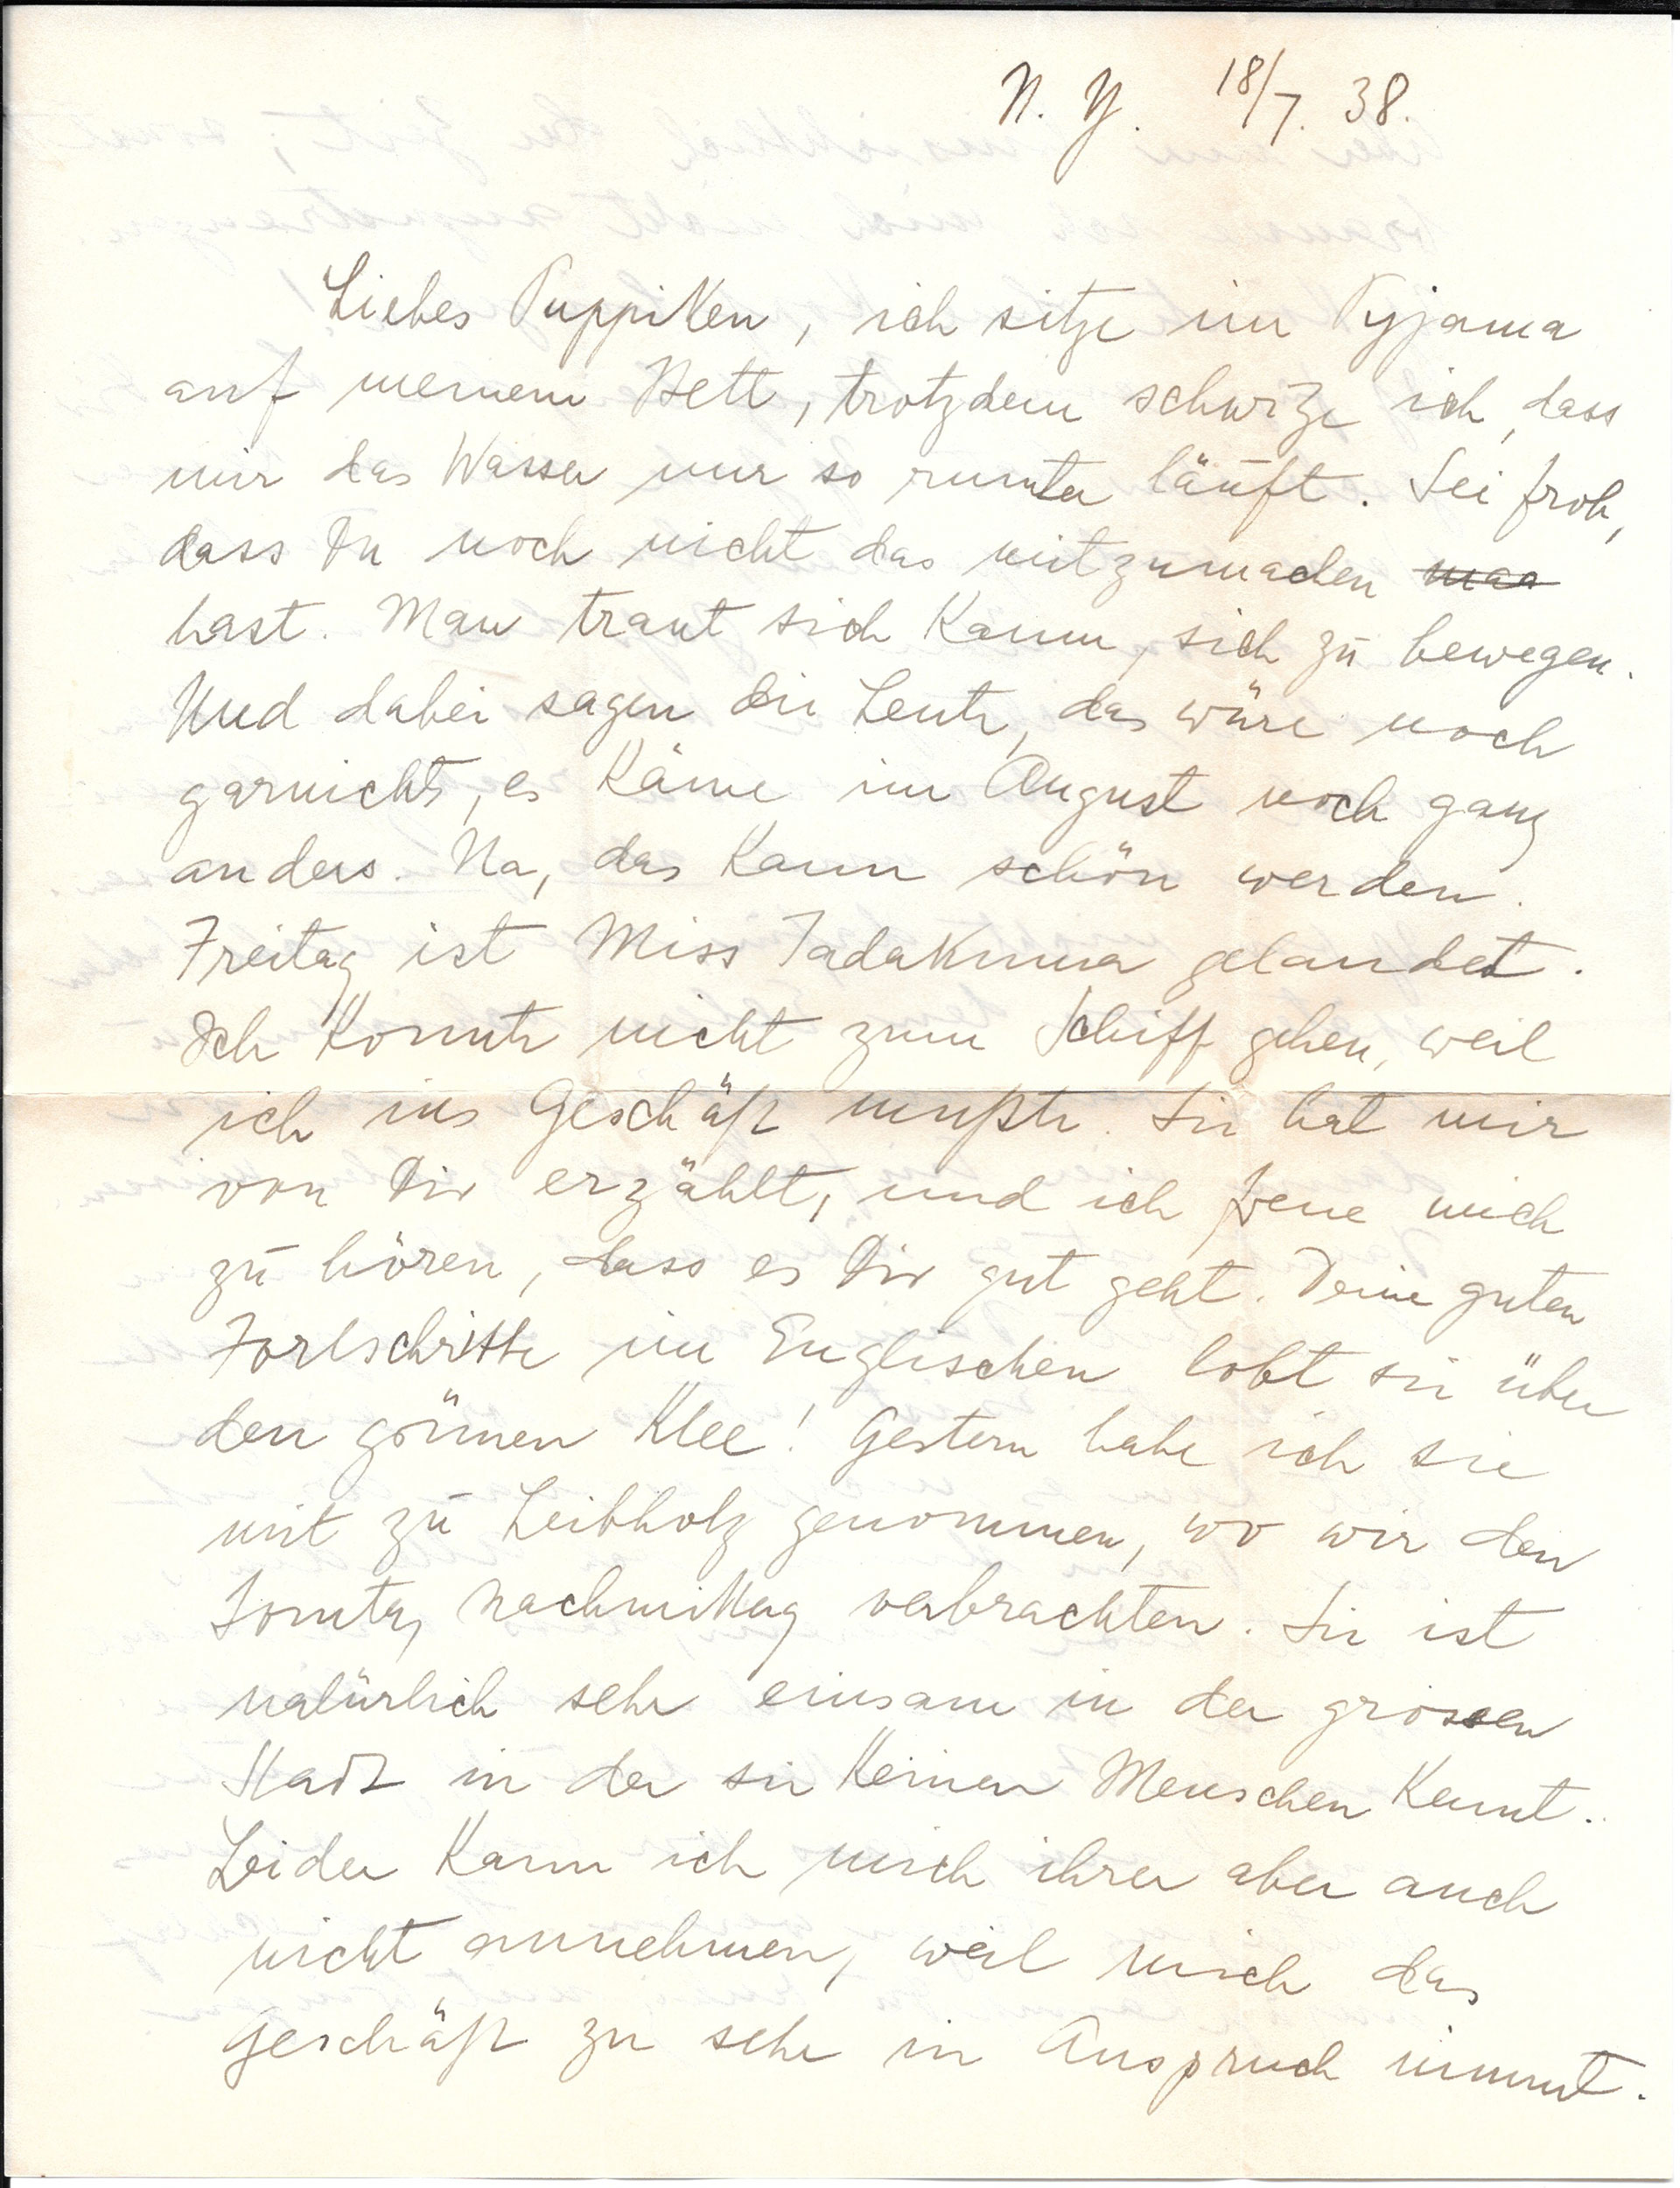 N. Y. 18/7. 38.
Liebes Puppiken, ich sitze im Pyjama
auf meinem Bett, trotzdem schwitze ich, dass
mir das Wasser nur so runter läuft. Sei froh,
dass Du noch nicht das mitzumachen maa
hast. Man traut sich kaum, sich zu bewegen.
Und dabei sagen die Leute, das wäre noch
garnichts, es käme im August noch ganz
anders. Na, das kann schön werden.
Freitag ist Miss Tadakuma gelandet.
Ich konnte nicht zum Schiff gehen, weil
ich ins Geschäft mußte. Sie hat mir
von Dir erzählt, und ich freue mich
zu hören, dass es Dir gut geht. Deine guten
Fortschritte im Englischen lobt sie über
den grünen Klee! Gestern habe ich sie
mit zu Leibholz genommen, wo wir den
Sonntag nachmittag verbrachten. Sie ist
natürlich sehr einsam in der grossen
Stadt in der sie keinen Menschen kennt.
Leider kann ich mich ihrer aber auch
nicht annehmen, weil mich das
Geschäft zu sehr in Anspruch nimmt.